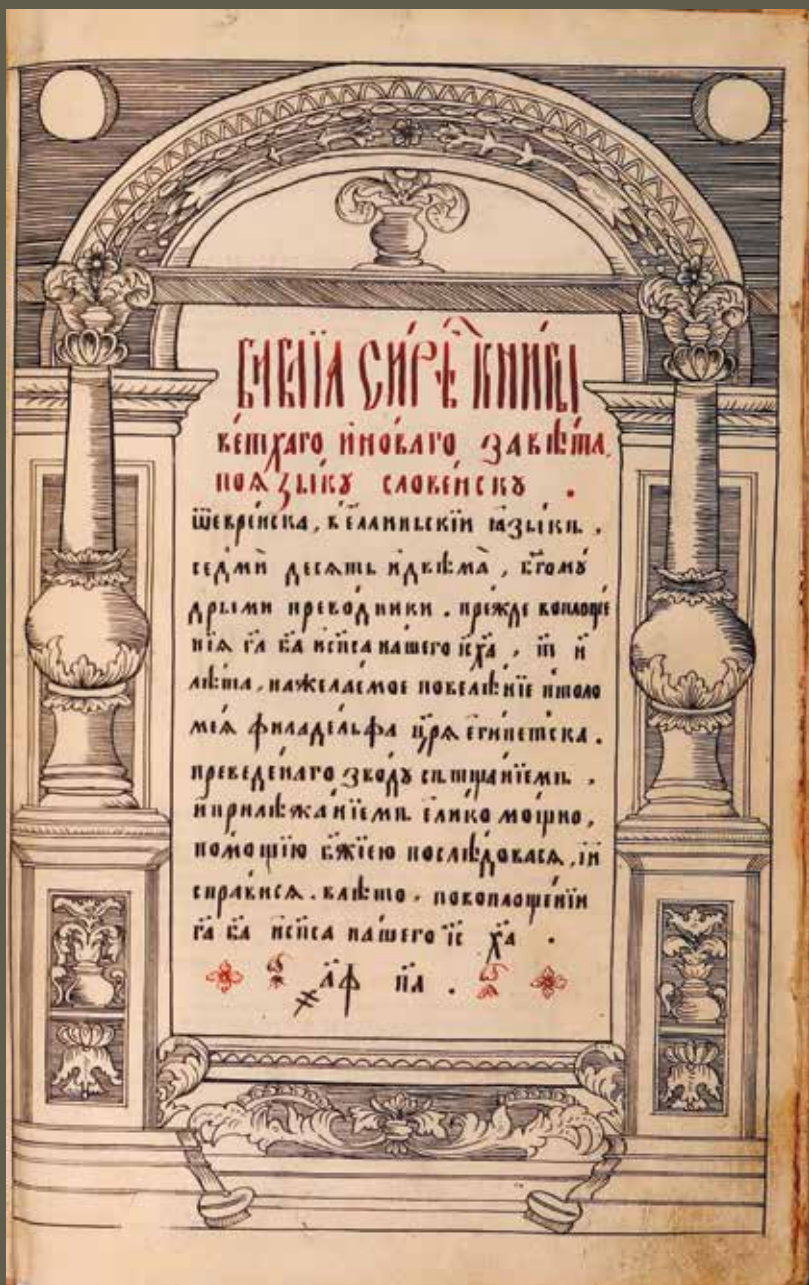 БИ́БЛЇА СИ́РѢ̑Ч КНИ́ГЫ
ве́тхаго и҆но́ваго завѣ́та,
поѧ҆зы́кꙋ слове́нскꙋ .
ѿевре́йска, ве҆́ллиньскїи ꙗ҆зы́къ .
се́дмй десѧть и҆двѣма̀ , бг҃омꙋ
дрыми преводники . пре́жде воплоще
нїѧ гⷭ҇а бг҃а и҆сп҃са на́шего і҆с х҃а , т҃ и҃
лѣ́та , нажела́емое повелѣ́нїе птоло
ме́ѧ филаде́льфа цр҃ѧ є҆ги́петска .
преведе́наго зво́дꙋ стща́нїемъ .
и҆прилѣжа́нїемъ є҆ли́ко мо́щно ,
по́мощїю бж҃їею послѣ́довасѧ , и҆и
спра́висѧ . влѣ́то . повоплоще́нїи
гⷭ҇а бг҃а и҆сп҃са на́шего і҆с х҃а .
҂а҃ф п҃а .